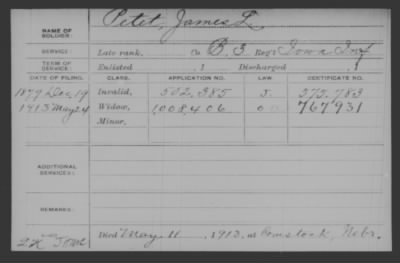 NAME OF SOLDIER: Petet, James F.
SERVICE: Late rank, Co. B, 3, Reg't Iowa Inf
TERM OF SERVICE: Enlisted , 1 Discharged , 1
DATE OF FILING. CLASS. APPLICATION NO. LAW. CERTIFICATE NO.
1879 Dec. 19 Invalid, 502.385 573.783
1913 May 24 Widow, 1,008,406 767931
Minor,
ADDITIONAL SERVICES:
REMARKS:
Died May 11 , 1913, at Comstock, Nebr.